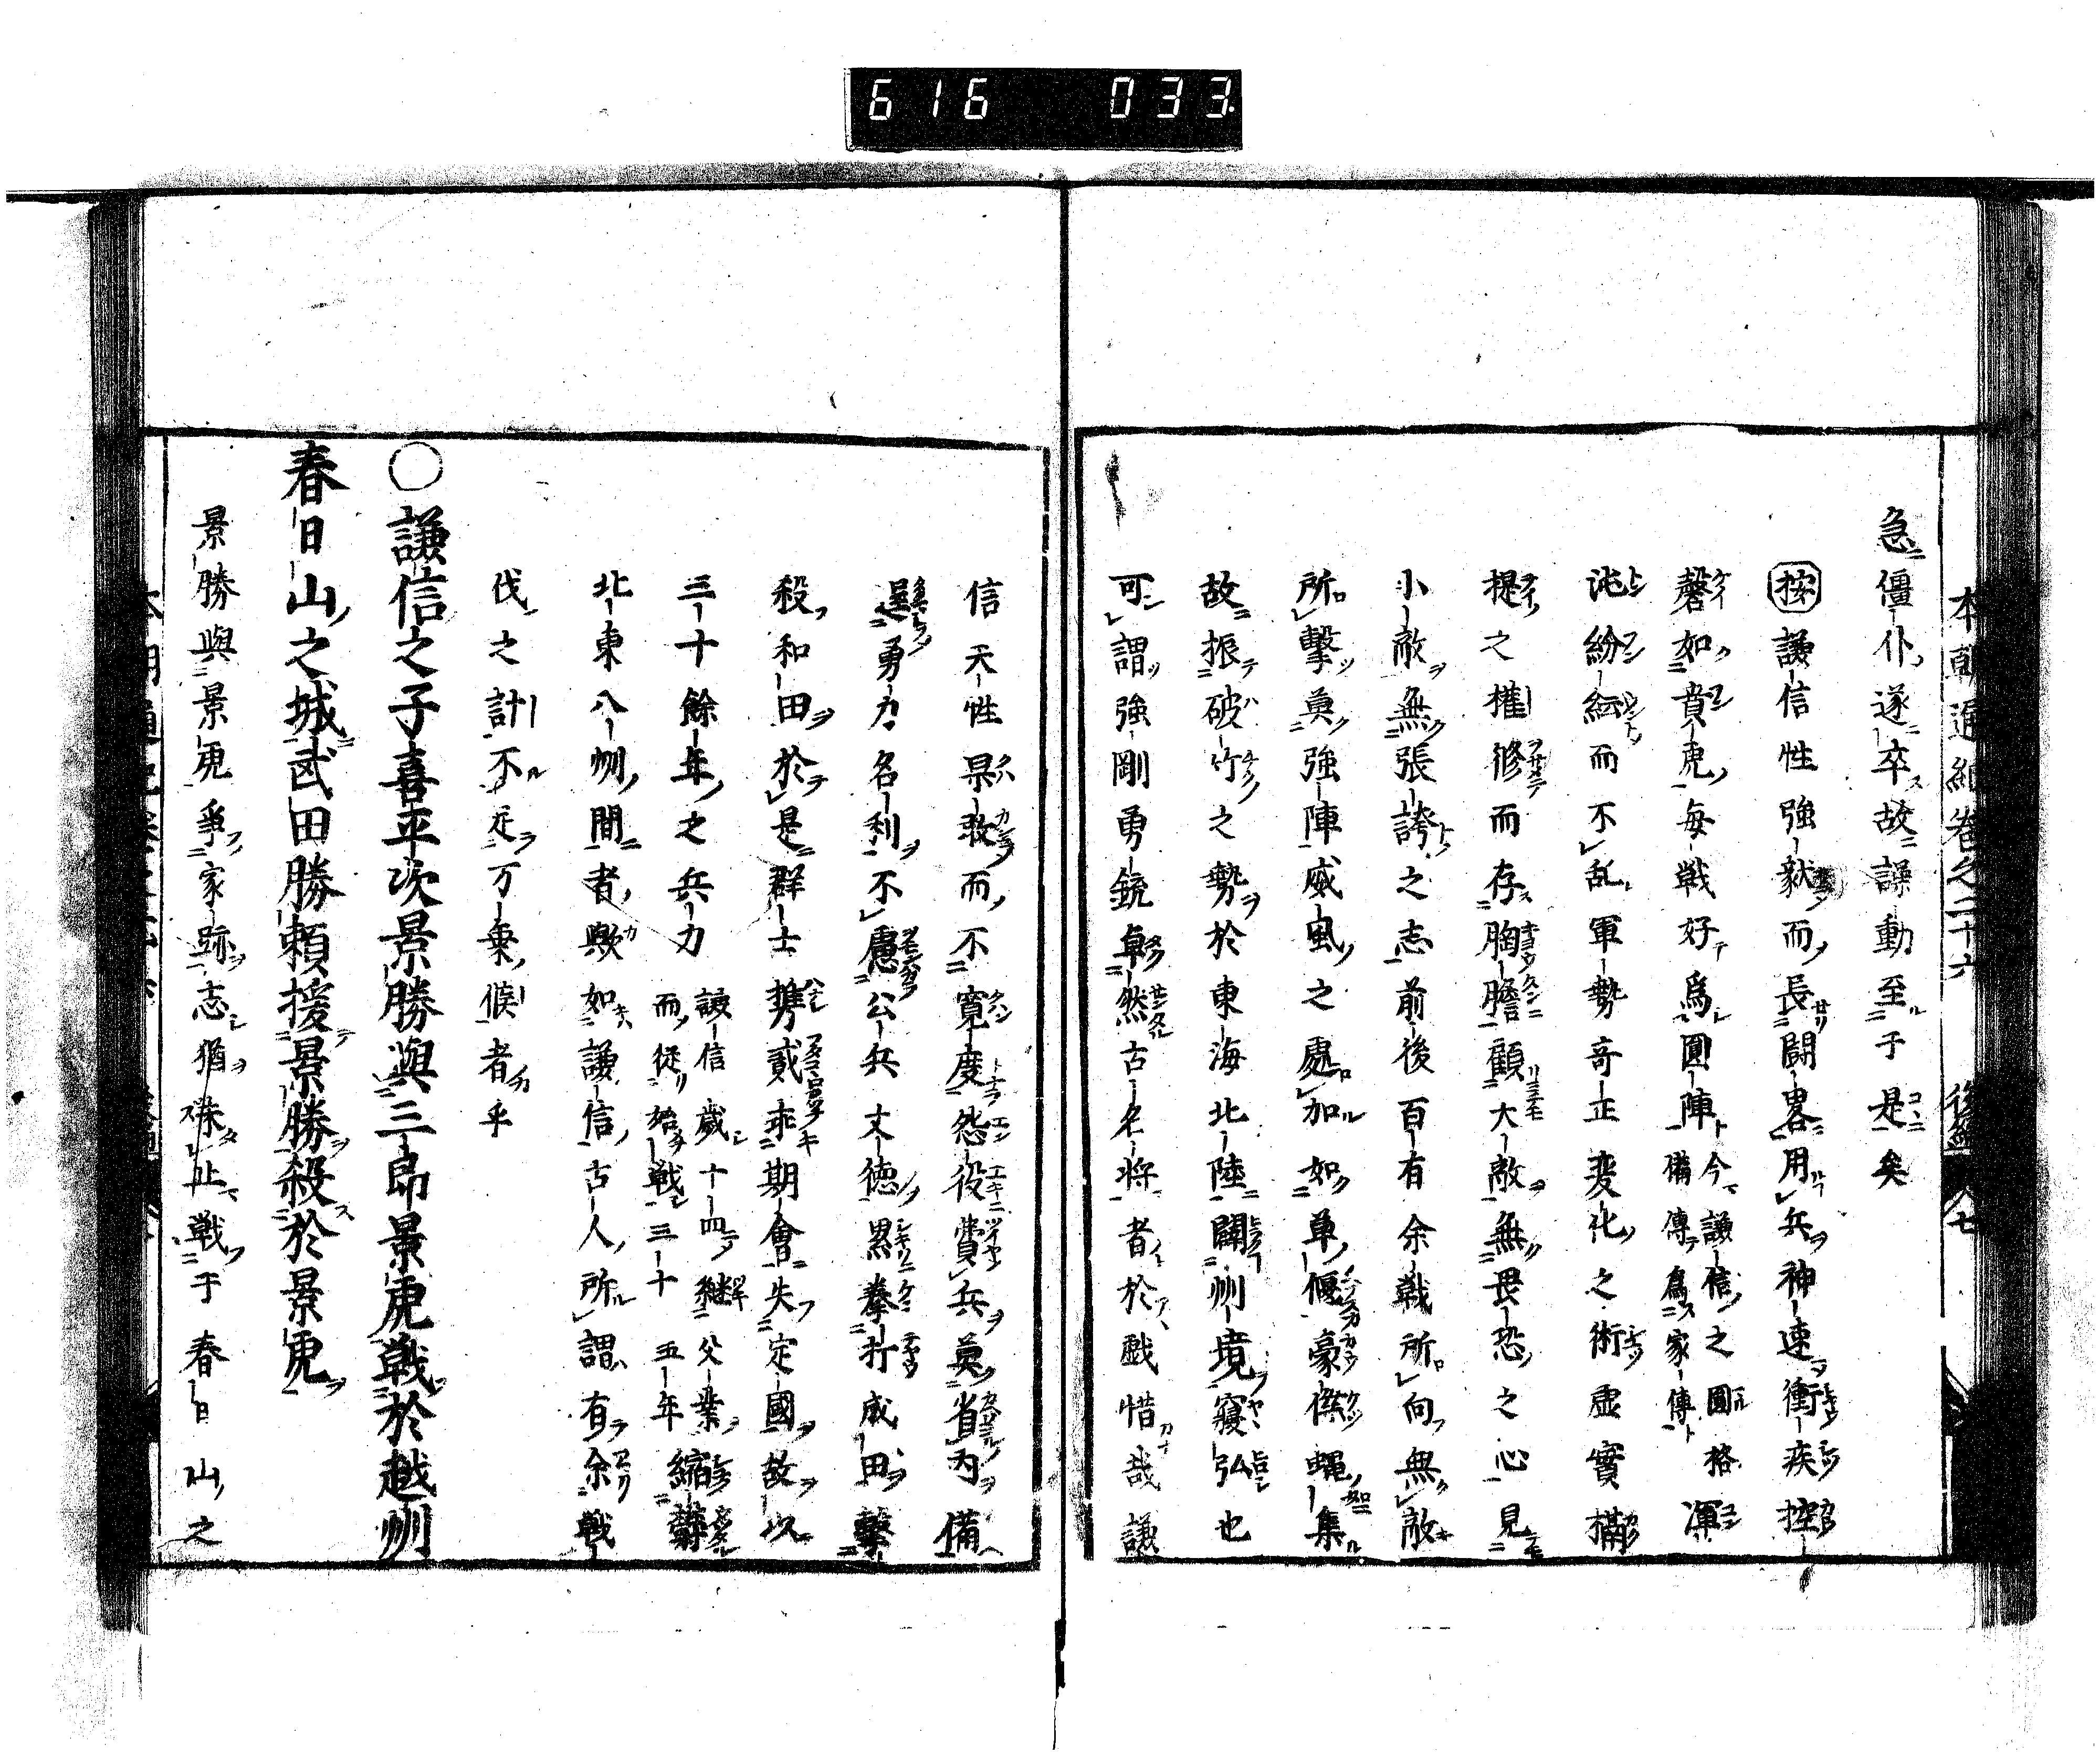 616 033
本朝通紀卷之二十六 後編 八七
急僵仆遂卒故譟動至于是矣
按謙信性強猷而長闘畧用兵神速衝疾控
磬如賁虎毎戦好爲圓陣今謙信之圓格
備傳爲家傳渾
沌紛紜而不乱軍勢奇正変化之術虚實擒
提之權修而存胸膽顧大敵無畏恐之心見
小敵無張誇之志前後百有余戦所向無敵
所擊莫強陣威風之處加如草偃豪傑蠅集
故振破竹之勢於東海北陸闢州境寢弘也
可謂強剛勇鋭卓然古名将者於戯惜哉謙
信天性果敢而不寛度怨役費兵莫省内備
逞勇力名利不慮公兵丈徳黙拳打成田擊
殺和田於是群士携貳乖期會失定國故以
三十餘年之兵力謙信歳十四継父業縮
而従始戦三十五年
北東八州間者歟如謙信古人所謂有余戦
伐之計不足万乗候者乎
○謙信之子喜平次景勝與三郎景虎戦於越州
春日山之城武田勝頼援景勝殺於景虎
景勝與景虎爭家跡志猶未止戦于春日山之